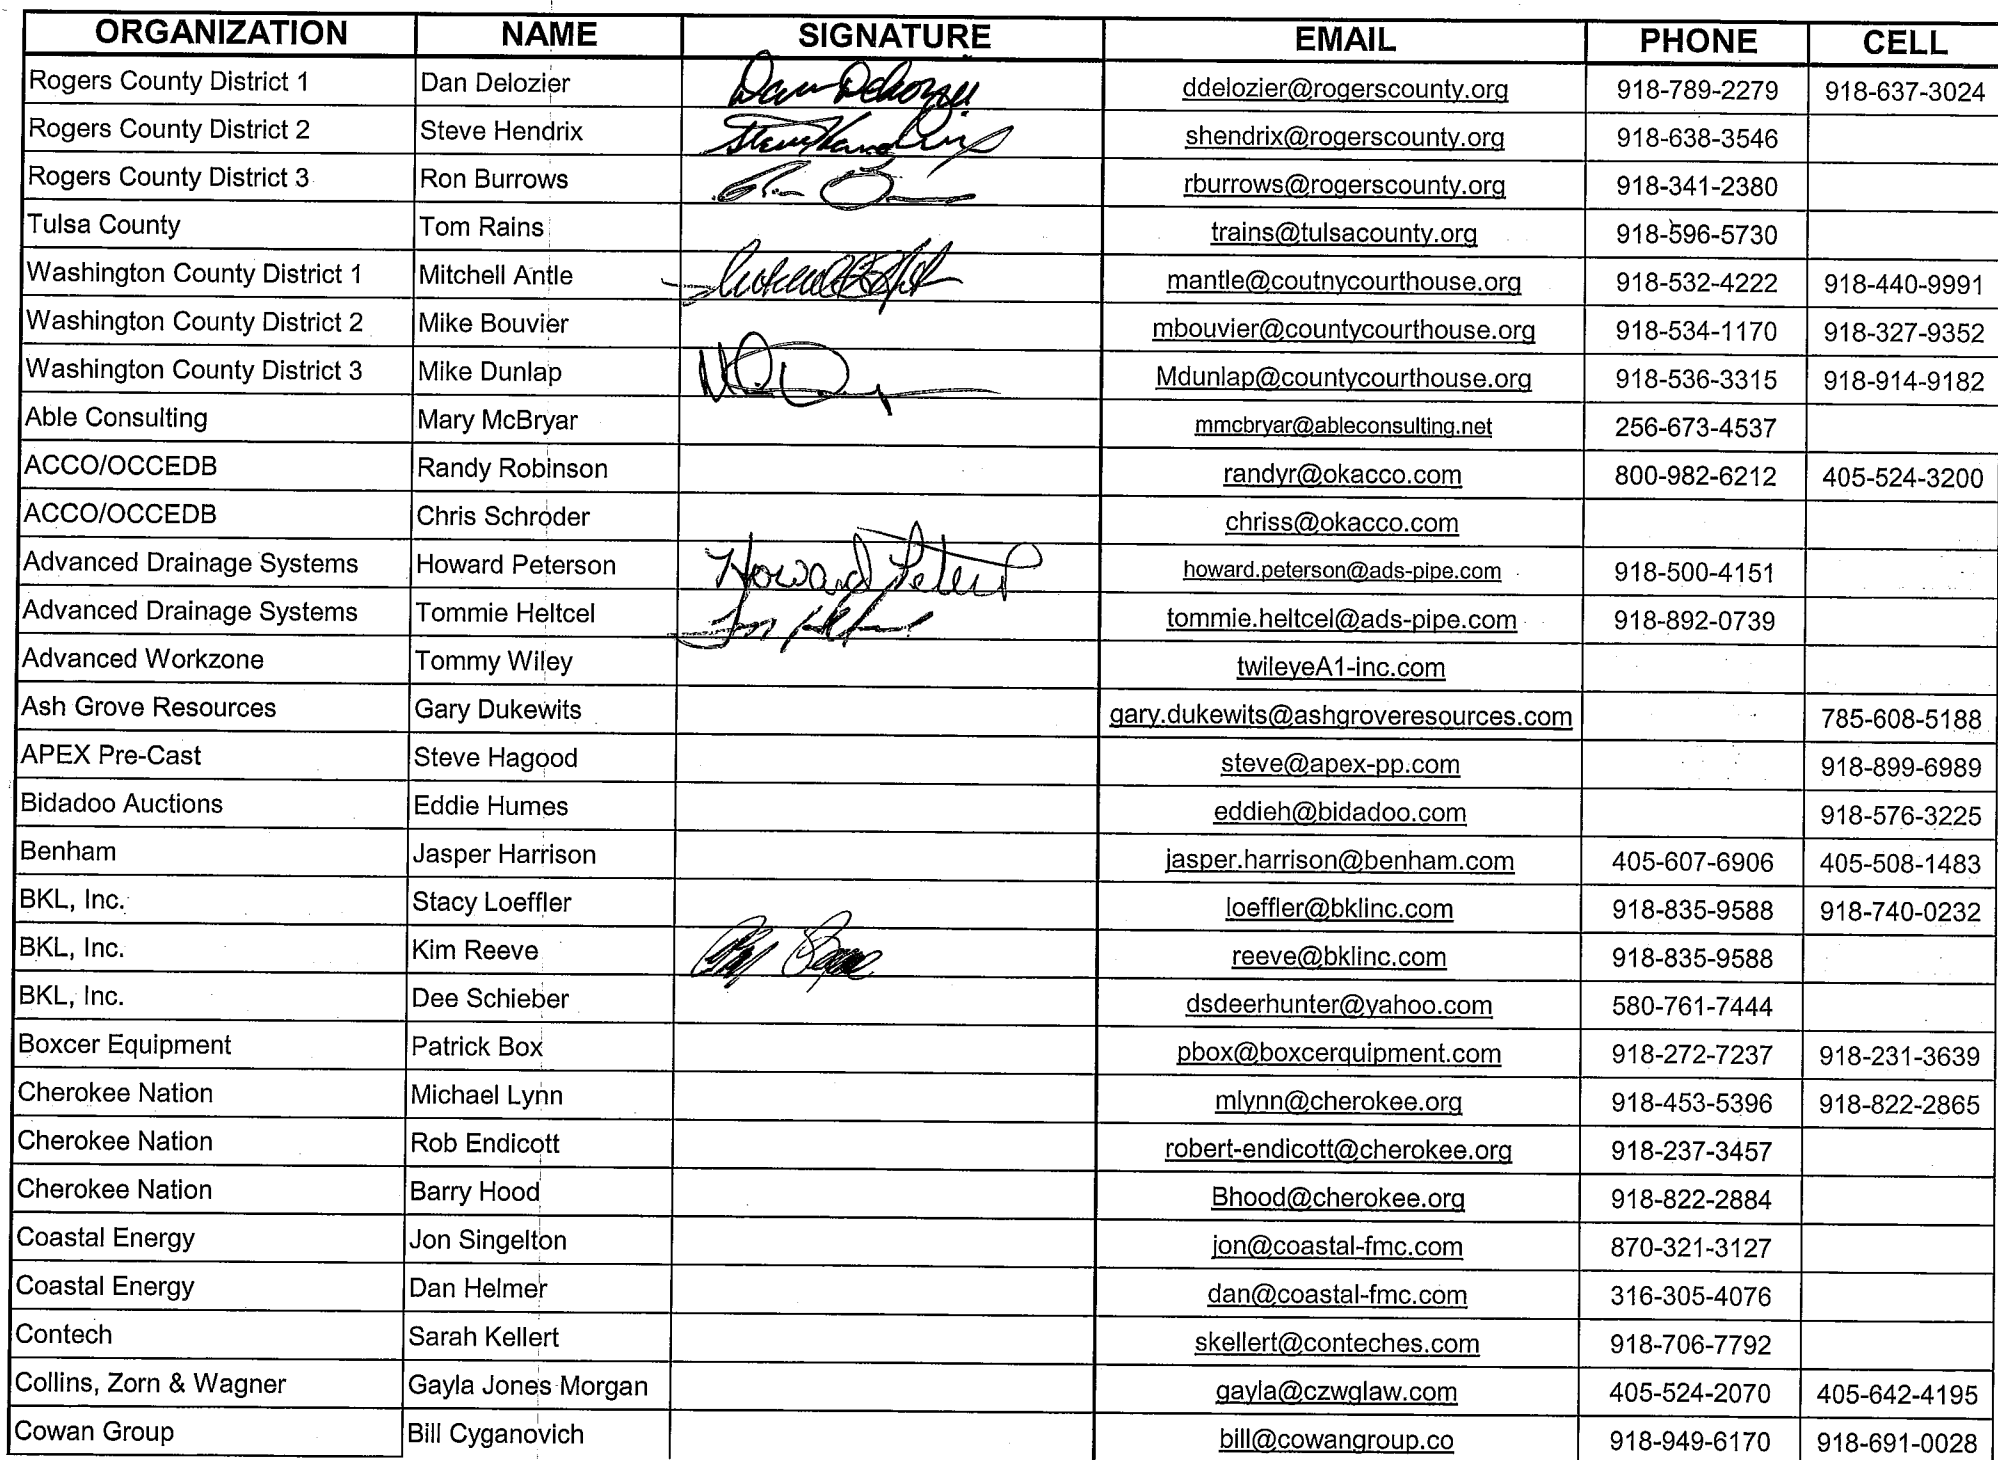 ORGANIZATION NAME SIGNATURE EMAIL PHONE CELL
Rogers County District 1 Dan Delozier Dan Delozier ddelozier@rogerscounty.org 918-789-2279 918-637-3024
Rogers County District 2 Steve Hendrix Steve Hendrix shendrix@rogerscounty.org 918-638-3546
Rogers County District 3 Ron Burrows rburrows@rogerscounty.org 918-341-2380
Tulsa County Tom Rains trains@tulsacounty.org 918-596-5730
Washington County District 1 Mitchell Antle mantle@coutnycourthouse.org 918-532-4222 918-440-9991
Washington County District 2 Mike Bouvier mbouvier@countycourthouse.org 918-534-1170 918-327-9352
Washington County District 3 Mike Dunlap Mdunlap@countycourthouse.org 918-536-3315 918-914-9182
Able Consulting Mary McBryar mmcbryar@ableconsulting.net 256-673-4537
ACCO/OCCEDB Randy Robinson randyr@okacco.com 800-982-6212 405-524-3200
ACCO/OCCEDB Chris Schroder chriss@okacco.com
Advanced Drainage Systems Howard Peterson Howard Peterson howard.peterson@ads-pipe.com 918-500-4151
Advanced Drainage Systems Tommie Heltcel tommie.heltcel@ads-pipe.com 918-892-0739
Advanced Workzone Tommy Wiley twileyeA1-inc.com
Ash Grove Resources Gary Dukewits gary.dukewits@ashgroveresources.com 785-608-5188
APEX Pre-Cast Steve Hagood steve@apex-pp.com 918-899-6989
Bidadoo Auctions Eddie Humes eddieh@bidadoo.com 918-576-3225
Benham Jasper Harrison jasper.harrison@benham.com 405-607-6906 405-508-1483
BKL, Inc. Stacy Loeffler loeffler@bklinc.com 918-835-9588 918-740-0232
BKL, Inc. Kim Reeve reeve@bklinc.com 918-835-9588
BKL, Inc. Dee Schieber dsdeerhunter@yahoo.com 580-761-7444
Boxcer Equipment Patrick Box pbox@boxcerquipment.com 918-272-7237 918-231-3639
Cherokee Nation Michael Lynn mlynn@cherokee.org 918-453-5396 918-822-2865
Cherokee Nation Rob Endicott robert-endicott@cherokee.org 918-237-3457
Cherokee Nation Barry Hood Bhood@cherokee.org 918-822-2884
Coastal Energy Jon Singelton jon@coastal-fmc.com 870-321-3127
Coastal Energy Dan Helmer dan@coastal-fmc.com 316-305-4076
Contech Sarah Kellert skellert@conteches.com 918-706-7792
Collins, Zorn & Wagner Gayla Jones Morgan gayla@czwglaw.com 405-524-2070 405-642-4195
Cowan Group Bill Cyganovich bill@cowangroup.co 918-949-6170 918-691-0028